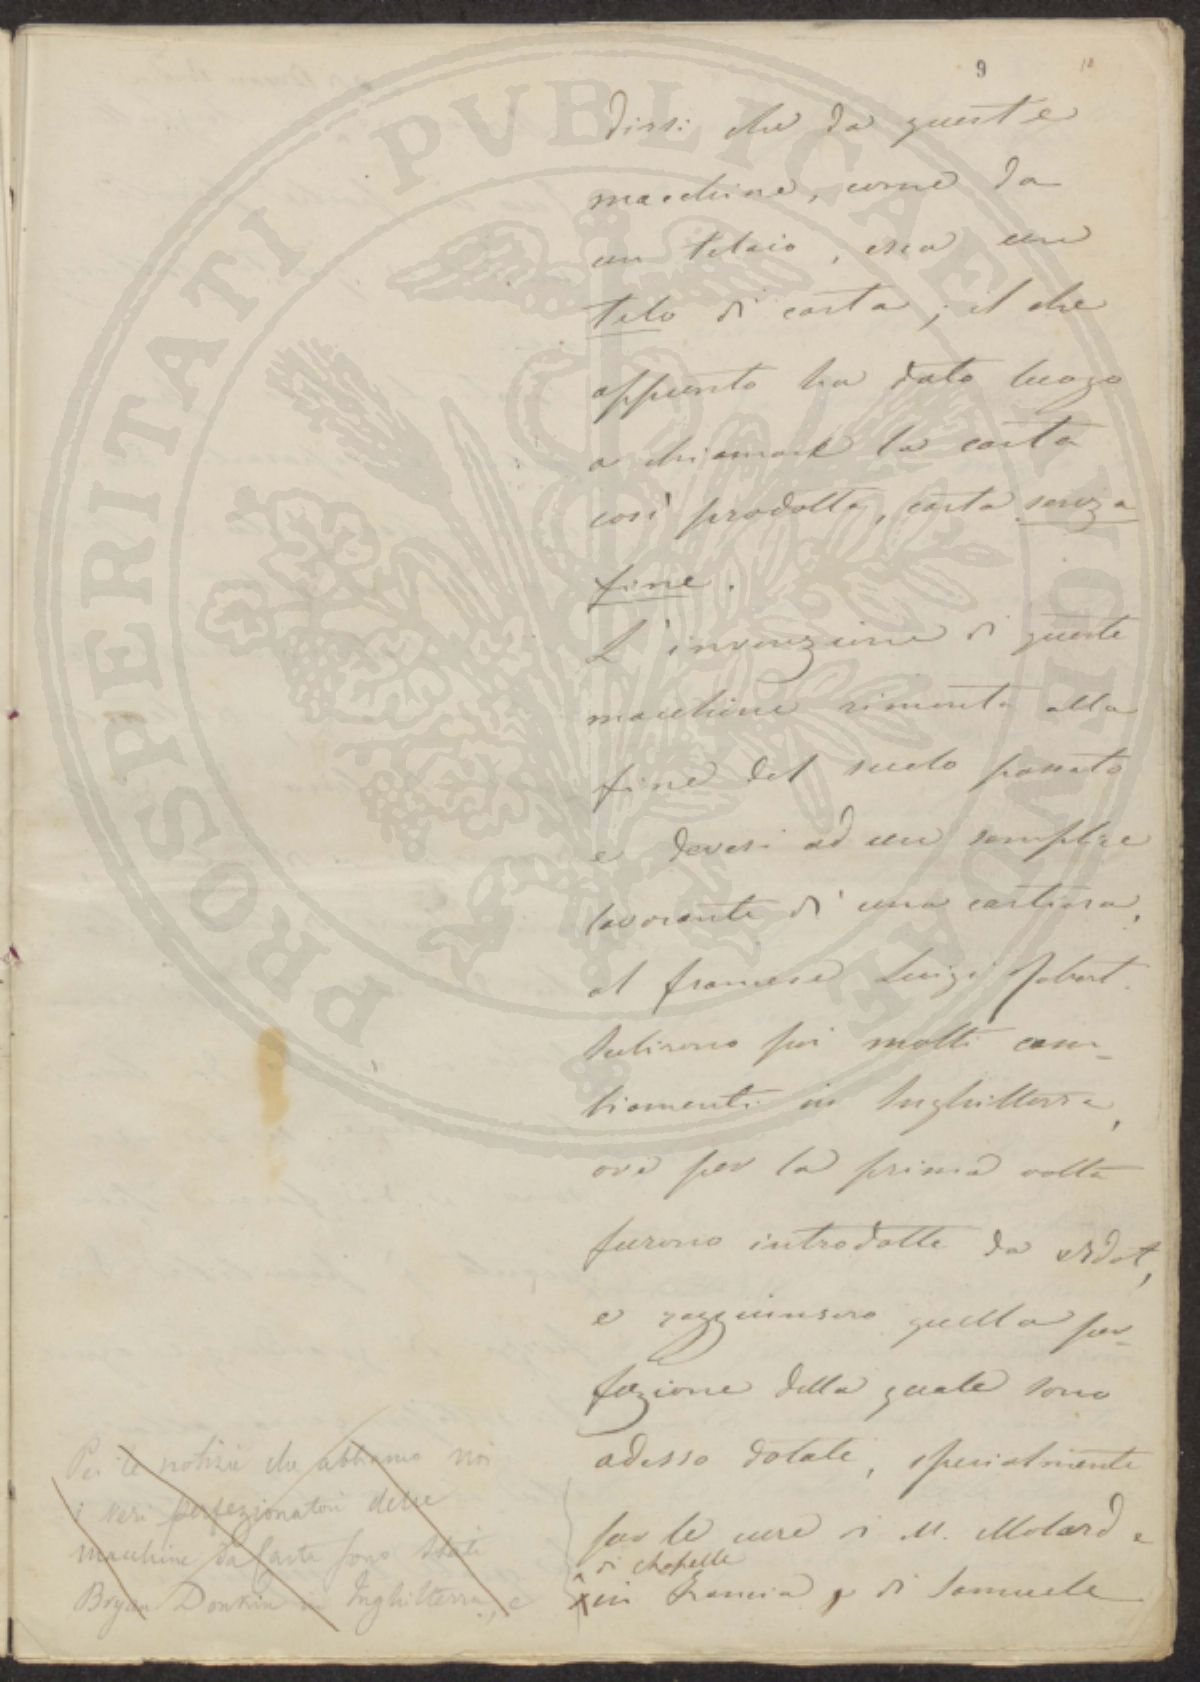 9
dissi che da queste
macchine, come da
un telaio, esca un
telo di carta; il che
appunto ha dato luogo
a chiamare la carta
così prodotta, carta senza
fine.
L'invenzione di queste
macchine rimonta alla
fine del secolo passato
e devesi ad un semplice
lavorante di una cartiera,
al francese Luigi Robert.
Subirono poi molti cam-
biamenti in Inghilterra,
ove per la prima volta
furono introdotte da Didot,
e raggiunsero quella per-
fezione della quale sono
adesso dotate, specialmente
per le cure di M. Molard e
di Chapelle
in Francia, e di Samuele
Per le notizie che abbiamo noi
i veri perfezionatori delle
macchine da Carta sono stati
Bryan Donkin in Inghilterra, e
PROSPERITATI PVBLICAE